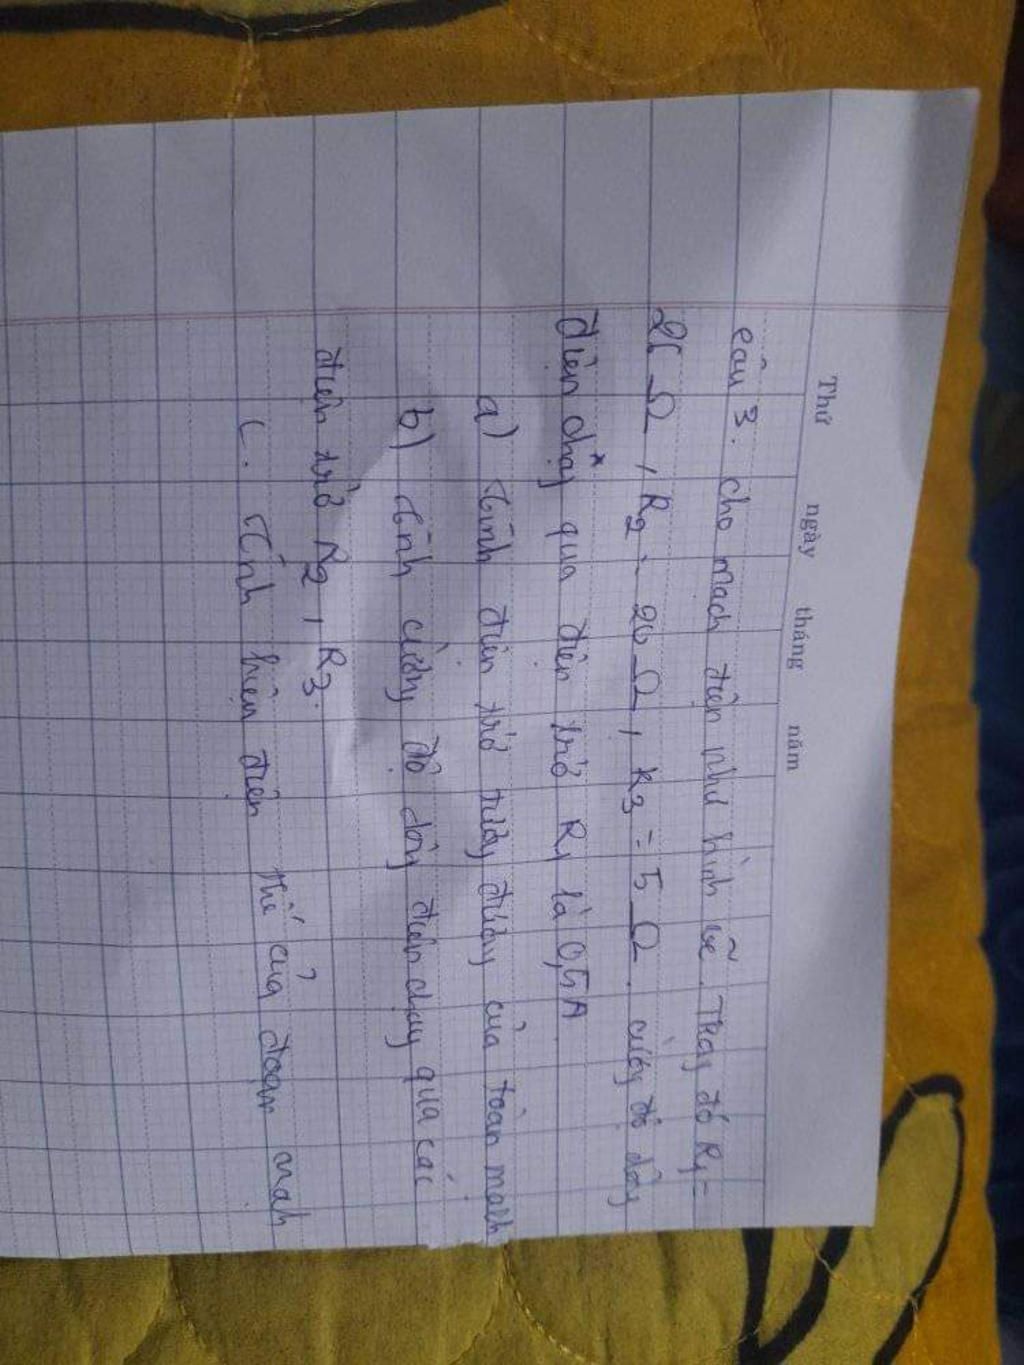 Thứ ngày tháng năm
Câu 3. Cho mạch điện như hình vẽ. Trong đó R1 =
25 Ω, R2 = 20 Ω, R3 = 5 Ω. cường độ dòng
điện chạy qua điện trở R1 là 0,5A
a) Tính điện trở tương đương của toàn mạch
b) Tính cường độ dòng điện chạy qua các
điện trở R2, R3.
c. Tính hiệu điện thế của đoạn mạch